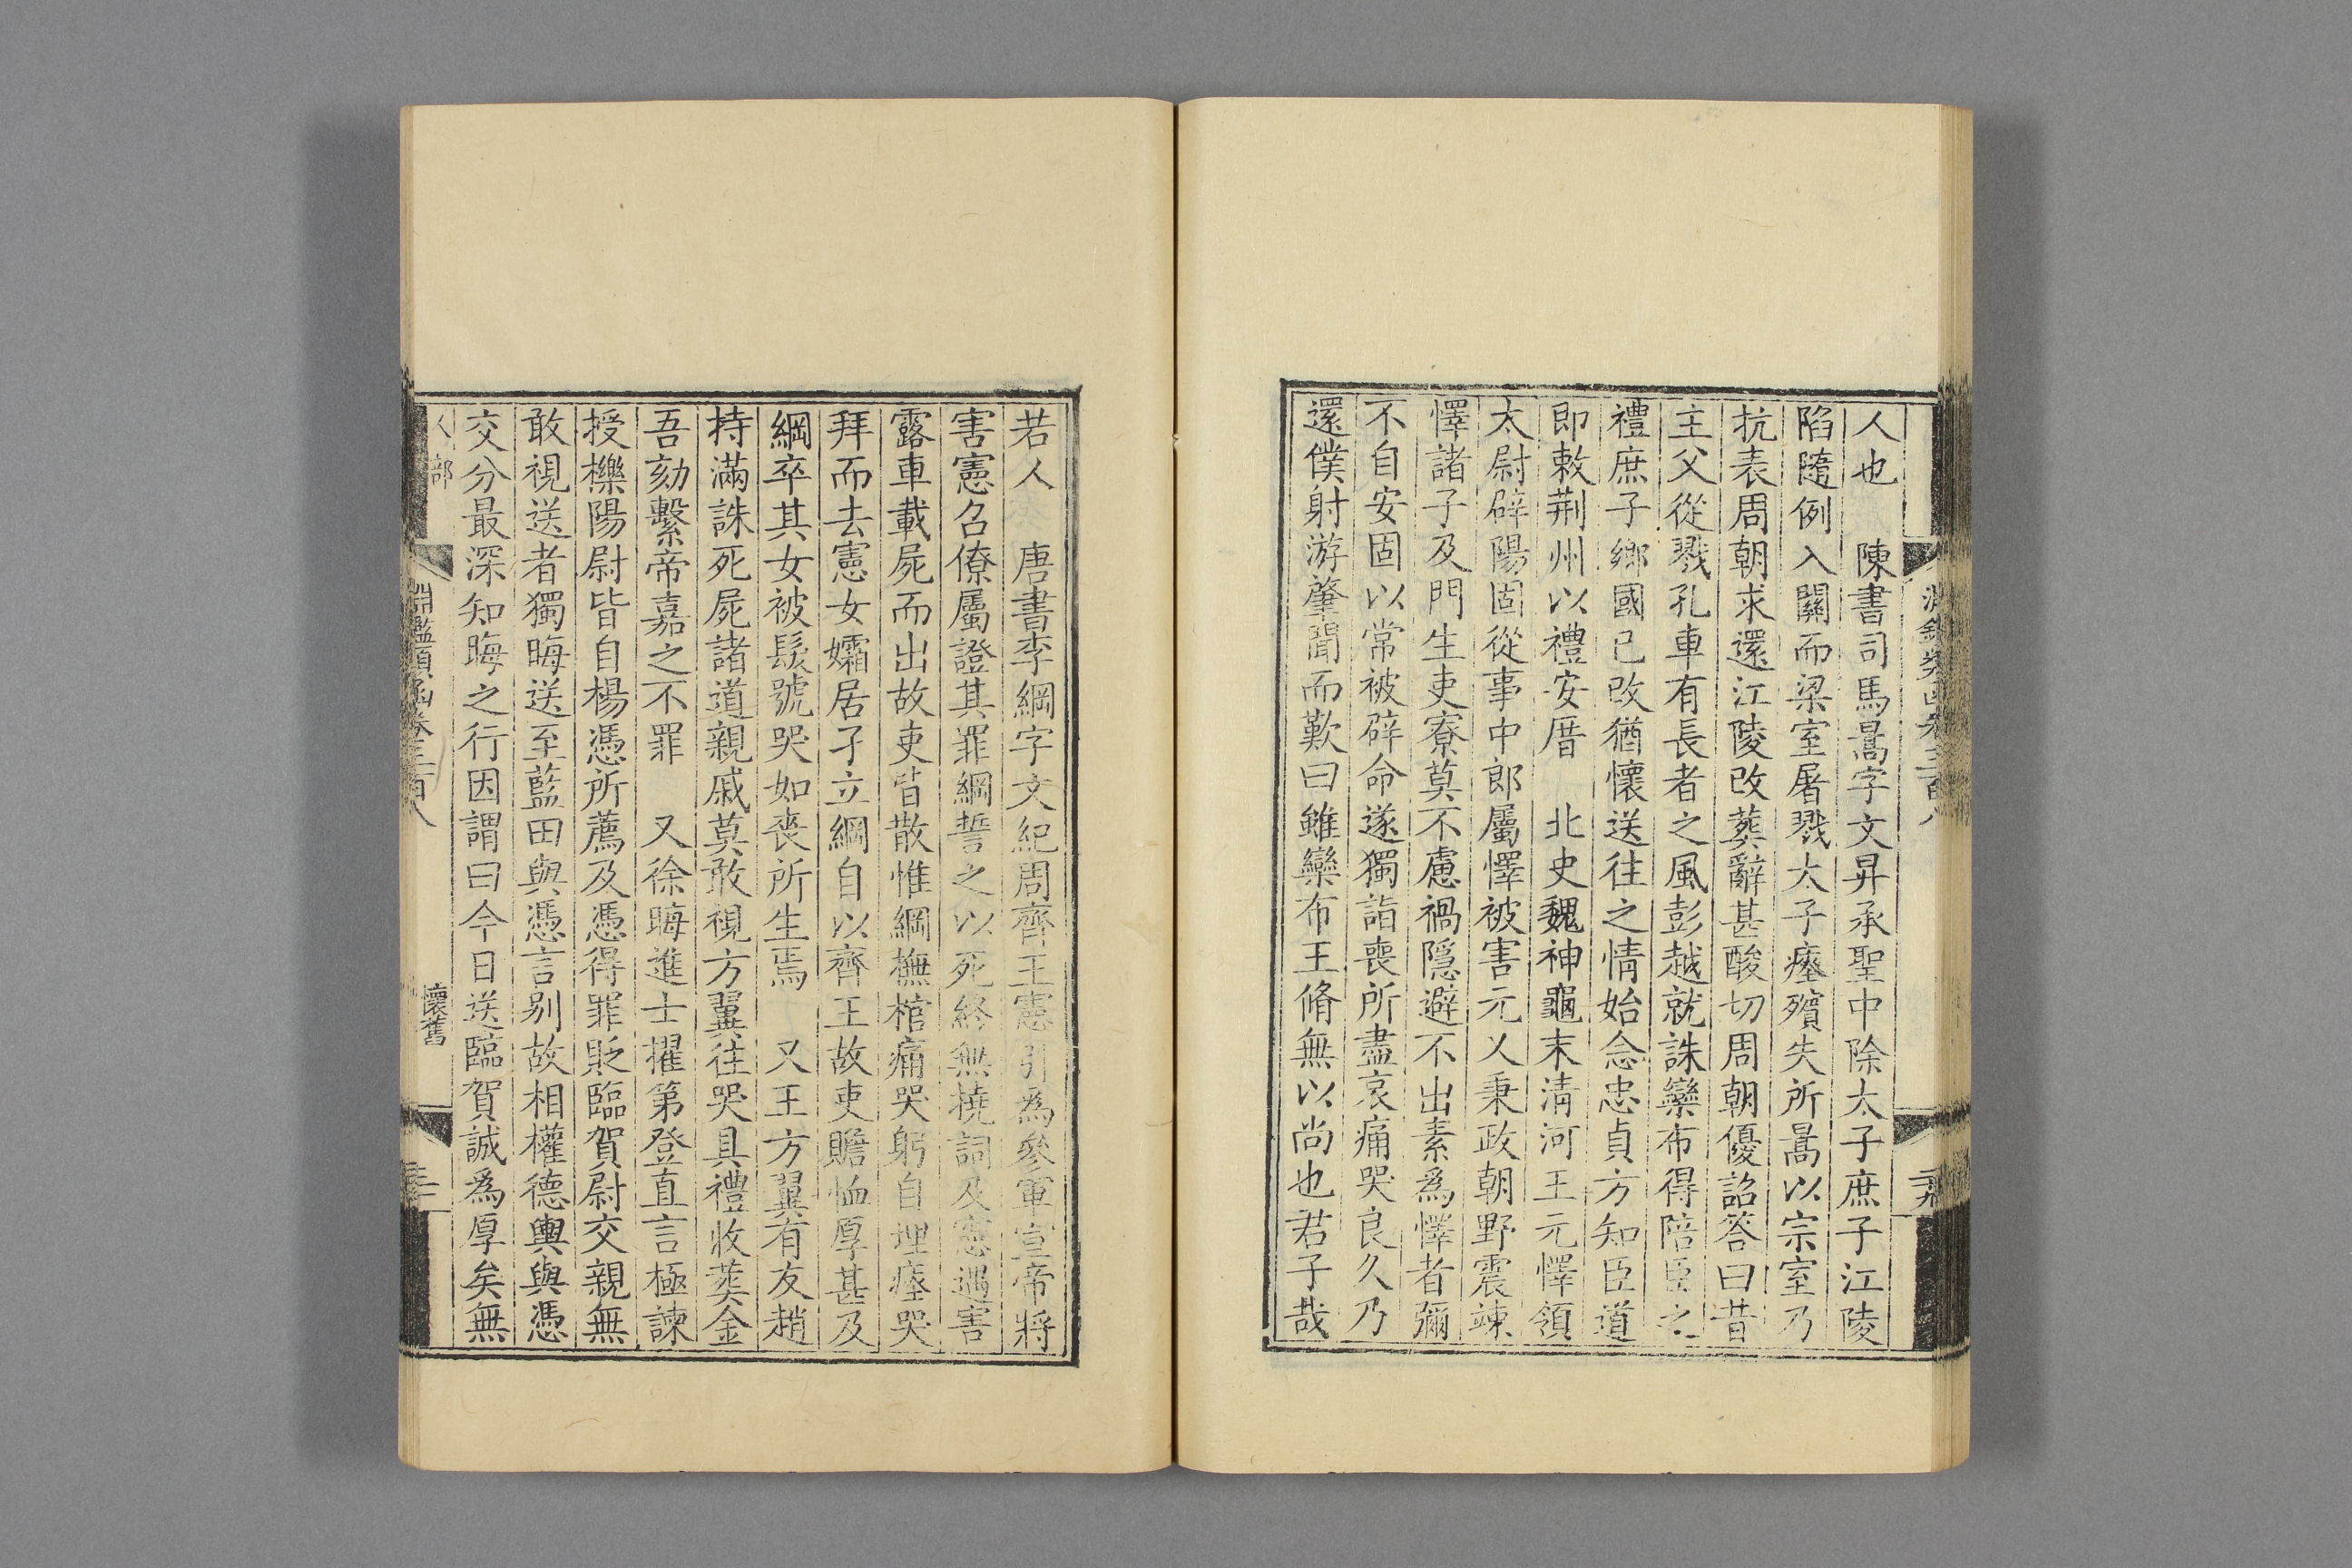 人也　陳書司馬暠字文昇承聖中除太子庶子江陵
陷隨例入關而梁室屠戮太子瘞殯失所暠以宗室乃
抗表周朝求還江陵改葬辭甚酸切周朝優詔答曰昔
主父從戮孔車有長者之風彭越就誅欒布得陪臣之
禮庶子鄉國已改猶懷送往之情始念忠貞方知臣道
即敕荆州以禮安厝　北史魏神龜末清河王元懌領
太尉辟陽固從事中郎屬懌被害元乂秉政朝野震竦
懌諸子及門生吏寮莫不慮禍隱避不出素爲懌者彌
不自安固以常被辟命遂獨詣喪所盡哀痛哭良久乃
還僕射游肇聞而歎曰雖欒布王脩無以尚也君子哉
若人　唐書李綱字文紀周齊王憲引爲參軍宣帝將
害憲召僚屬證其罪綱誓之以死終無撓詞及憲遇害
露車載屍而出故吏皆散惟綱撫棺痛哭躬自埋瘞哭
拜而去憲女孀居孑立綱自以齊王故吏贍恤厚甚及
綱卒其女被髮號哭如喪所生焉　又王方翼有友趙
持滿誅死屍諸道親戚莫敢視方翼往哭具禮收葬金
吾劾繫帝嘉之不罪　又徐晦進士擢第登直言極諫
授櫟陽尉皆自楊憑所薦及憑得罪貶臨賀尉交親無
敢視送者獨晦送至藍田與憑言别故相權德輿與憑
交分最深知晦之行因謂曰今日送臨賀誠爲厚矣無
人部
淵鑑類函卷三百八
懷舊